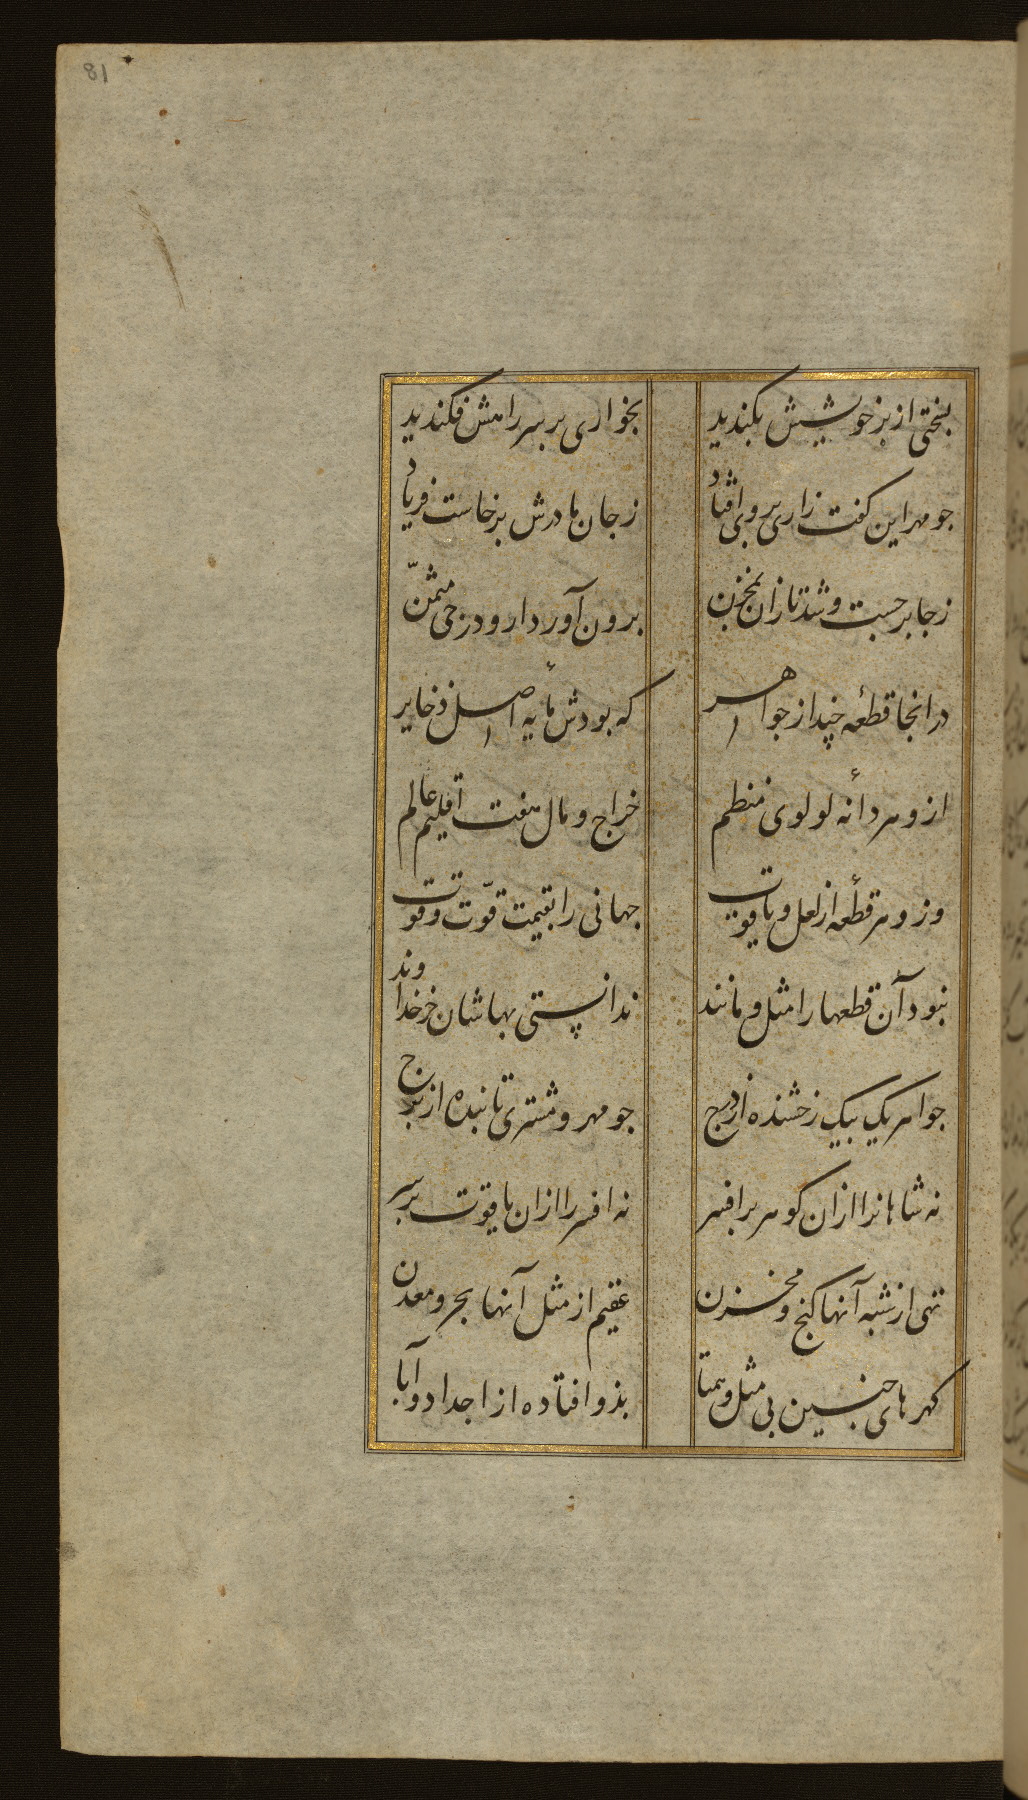 81
بسختی از بر خویشش بکندید
بخواری بر سر راهش فکندید
جو مهر این کفت زاری بر وی افتاد
ز جان مادرش برخاست فریاد
ز جا برجست و شد تازان بمخزن
برون آورد دارو درجی مثمّن
در انجا قطعهٔ چند از جواهر
که بودش مایهٔ اصل ذخایر
ازو هر دانهٔ لولوی منظم
خراج و مال هفت اقلیم عالم
وزو هر قطعهٔ از لعل و یاقوت
جهانی را بقیمت قوّت و قوت
نبود آن قطعها را مثل و مانند
ندانستی بهاشان جز خداوند
جواهر یک بیک رخشنده از درج
جو مهر و مشتری تابنده از برج
نه شاهانرا ازان کوهر بر افسر
نه افسر را ازان یاقوت بر سر
تهی از شبه آنها کنج و مخزن
عقیم از مثل آنها بحر و معدن
کهرهای جنین بی مثل و همتا
بذو افتاده از اجداد و آبا